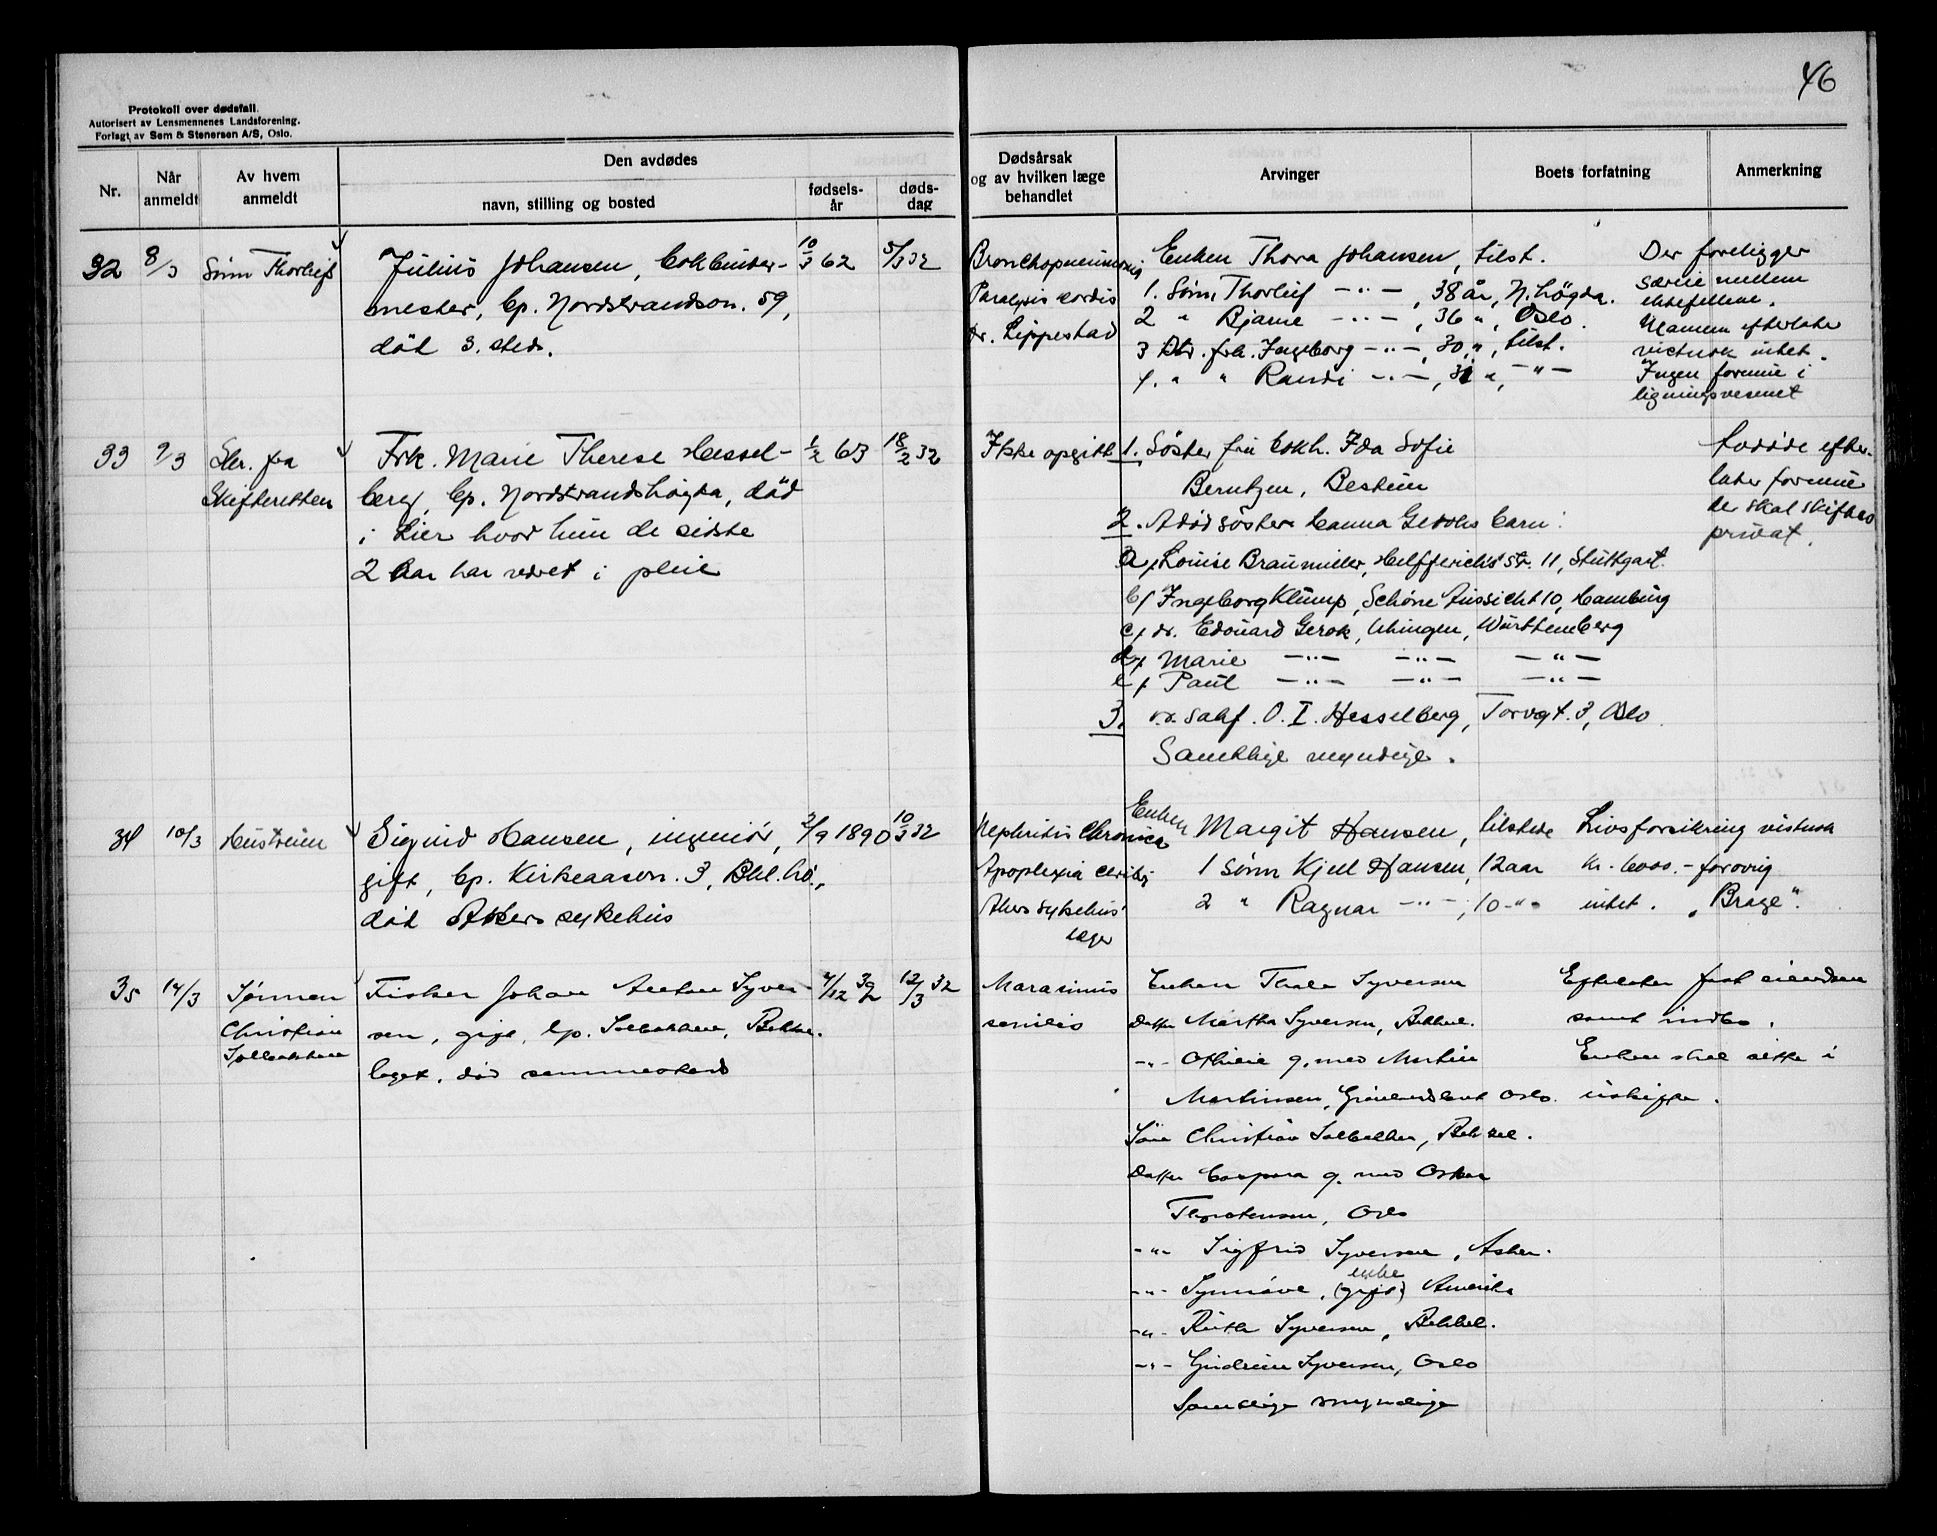 46
Protokoll over dødsfall.
Autorisert av Lensmennenes Landsforening.
Forlagt av Sem & Stenersen A/S, Oslo.
Nr.
Når anmeldt
Av hvem anmeldt
Den avdødes
navn, stilling og bosted
fødsels-år
døds-dag
Dødsårsak og av hvilken læge behandlet
Arvinger
Boets forfatning
Anmerkning
32 8/3 Sønn Thorleif
Julius Johansen, bokbinder- 10/3 62 5/3 32
mester, bp. Nordstrandsvn. 59,
död s. steds.
Bronchopneumonia
Paralysis cordis
dr. Lippestad
Enken Thora Johansen, tilst.
1. Sønn Thorleif —"—, 38 år, N.högda.
2 " Bjarne —"—, 36 ", Oslo.
3 Dtr. frk. Ingeborg —"—, 30 ", tilst.
4. " " Randi —"—, 31 ", —"—
Der foreligger
særeie mellem
ektefellene.
Mannen efterlater
visstnok intet.
Ingen formue i
ligningsvesenet
33 9/3 Skr. fra
Skifteretten
Frk. Marie Therese Hessel- 1/2 63 18/2 32
berg, bp. Nordstrandshögda, död
i Lier hvor hun de sidste
2 aar har været i pleie
Ikke opgitt
1. Söster fru bokh. Ida Sofie
Berntzen, Bestum
2. Avdöd söster Hanna Geroks barn:
a/ Louise Braumuller, Helfferichs str. 11, Stuttgart.
b/ Ingeborg Klump, Schöne Aussicht 10, Hamburg
c/ dr. Edouard Gerok, Uhingen, Württemberg
d/ Marie —"— —"— —"—
e/ Paul —"— —"— —"—
3. o.r. sakf. O. I. Hesselberg, Torvgt. 3, Oslo.
Samtlige myndige.
Avdöde efter-
later formue
der skal skiftes
privat.
34 10/3 Hustruen
Sigurd Hansen, ingeniør, 2/9 1890 10/3 32
gift, bp. Kirkeaasvn. 3, Bkl.hö.,
död Akers sykehus
Nephritis Chronica
Apoplexia cerebri
Akers sykehus'
læger
Enken Margit Hansen, tilstede
1 Sønn Kjell Hansen, 12 aar
2 " Ragnar —"—, 10 —"—
Livsforsikring vistnok
kr. 6000.- forøvrig
intet. "Brage".
35 14/3 Sønnen
Christian
Solbakken
Fisker Johan Anton Syver- 4/12 32 12/3 32
sen, gift, bp. Solbakken, Bekke-
laget, död sammesteds
Marasmus
senilis
Enken Thale Syversen
Datter Martha Syversen, Bekkel.
-"- Othilie g. med Martin
Martinsen, Grönlandsleret Oslo.
Sönn Christian Solbakken, Bekkel.
Datter Caspara g. med Oskar
Thorstensen, Oslo
-"- Sigfrid Syversen, Asker.
enke
-"- Synnöve, (gift) Amerika
-"- Ruth Syversen, Bekkel.
-"- Gudrun Syversen, Oslo
Samtlige myndige
Efterlater fast eiendom
samt indbo.
Enken skal sitte i
uskifte.